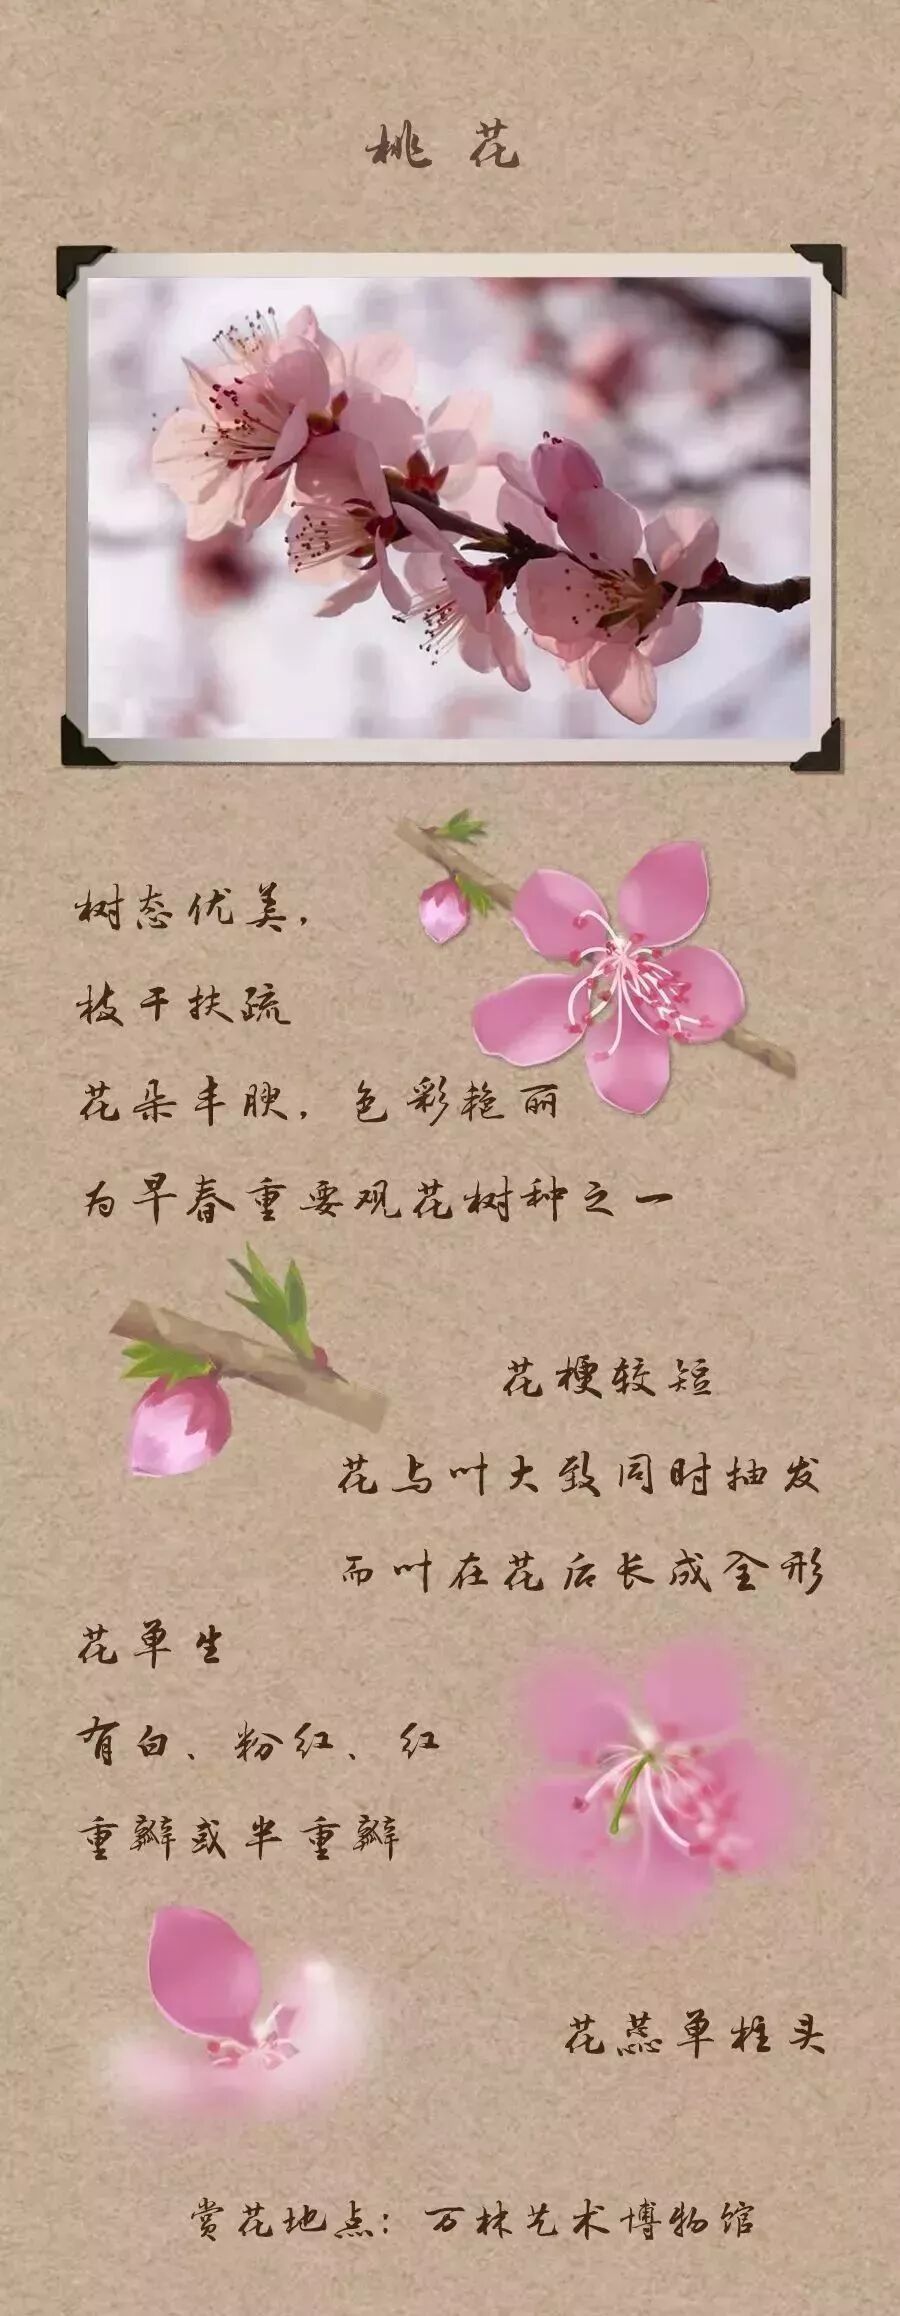 桃花
树态优美，
枝干扶疏
花朵丰腴，色彩艳丽
为早春重要观花树种之一
花梗较短
花与叶大致同时抽发
而叶在花后长成全形
花单生
有白、粉红、红
重瓣或半重瓣
花蕊单柱头
赏花地点：万林艺术博物馆